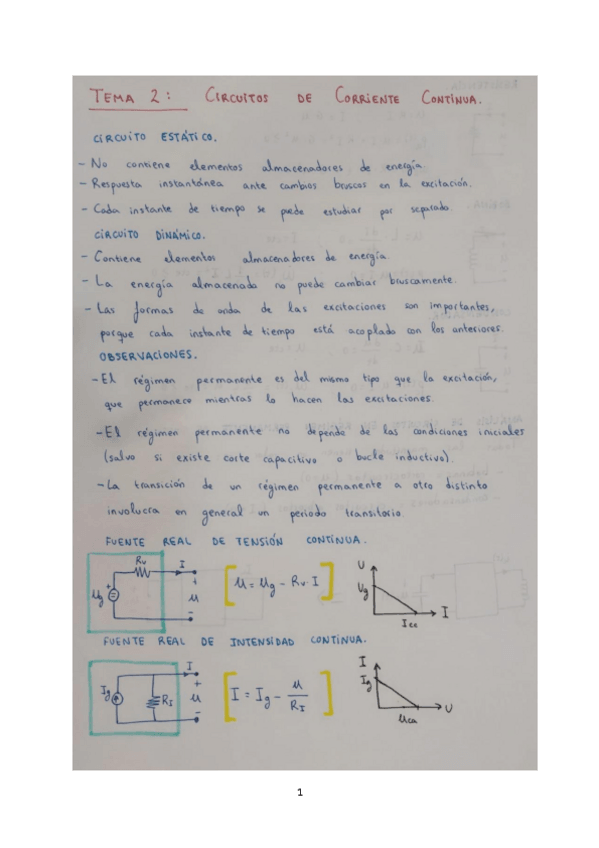 TEMA 2: CIRCUITOS DE CORRIENTE CONTINUA.
CIRCUITO ESTÁTICO.
- No contiene elementos almacenadores de energía.
- Respuesta instantánea ante cambios bruscos en la excitación.
- Cada instante de tiempo se puede estudiar por separado.
CIRCUITO DINÁMICO.
- Contiene elementos almacenadores de energía.
- La energía almacenada no puede cambiar bruscamente.
- Las formas de onda de las excitaciones son importantes,
porque cada instante de tiempo está acoplado con los anteriores.
OBSERVACIONES.
- El régimen permanente es del mismo tipo que la excitación,
que permanece mientras lo hacen las excitaciones.
- El régimen permanente no depende de las condiciones iniciales
(salvo si existe corte capacitivo o bucle inductivo).
- La transición de un régimen permanente a otro distinto
involucra en general un periodo transitorio.
FUENTE REAL DE TENSIÓN CONTINUA.
Rv I
+ Ug + u -
[u = ug - Rv I]
U Vg Icc I
FUENTE REAL DE INTENSIDAD CONTINUA.
I
Ig RI + u -
[I = Ig - u/RI]
I Ig Uca U
1